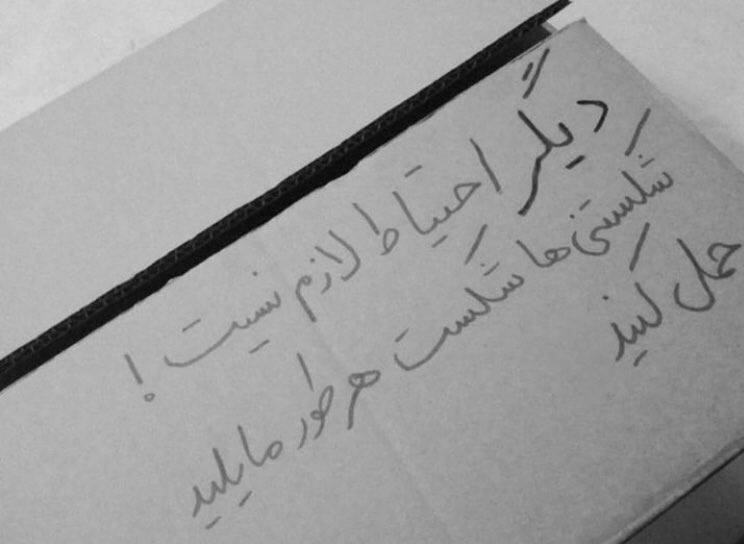 دیگر احتیاط لازم نیست !
شکستنی ها شکست هر طور مایلید
حمل کنید